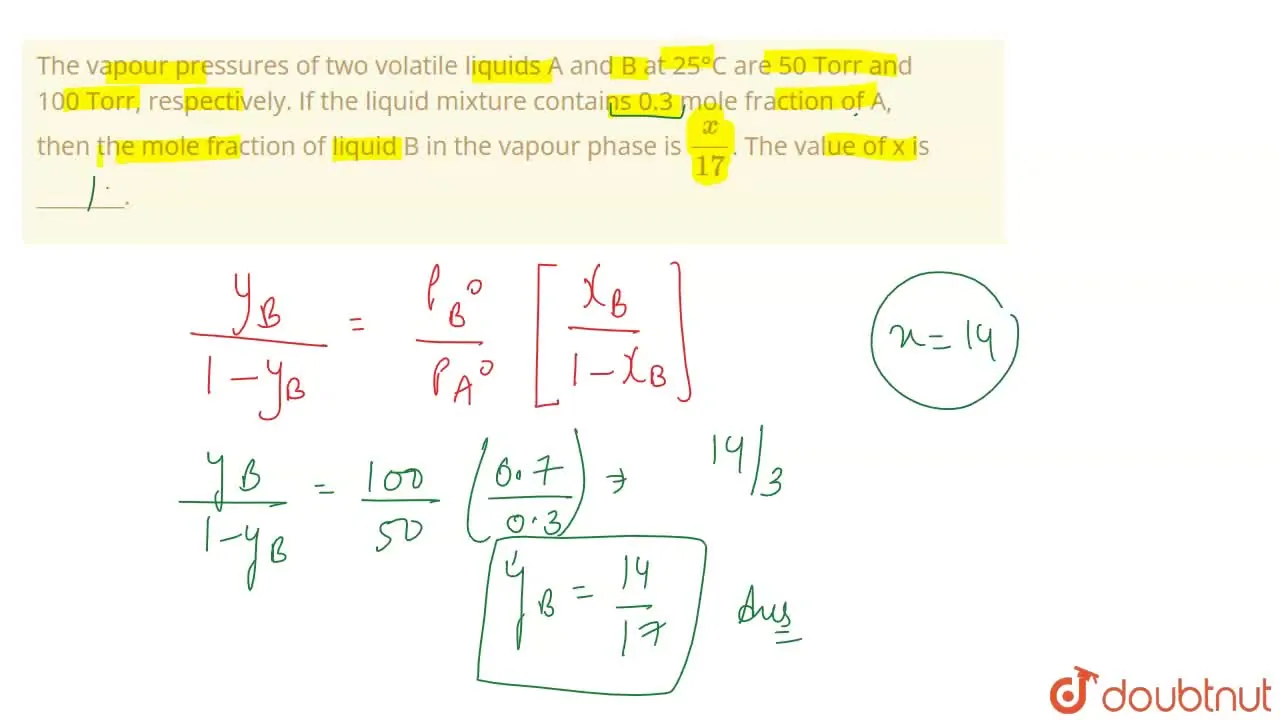 The vapour pressures of two volatile liquids A and B at 25°C are 50 Torr and
100 Torr, respectively. If the liquid mixture contains 0.3 mole fraction of A,
then the mole fraction of liquid B in the vapour phase is x/17. The value of x is
________.
y_B/(1-y_B) = P_B°/P_A° [x_B/(1-x_B)]
x=14
y_B/(1-y_B) = 100/50 (0.7/0.3) ⇒ 14/3
y_B = 14/17 Ans
doubtnut